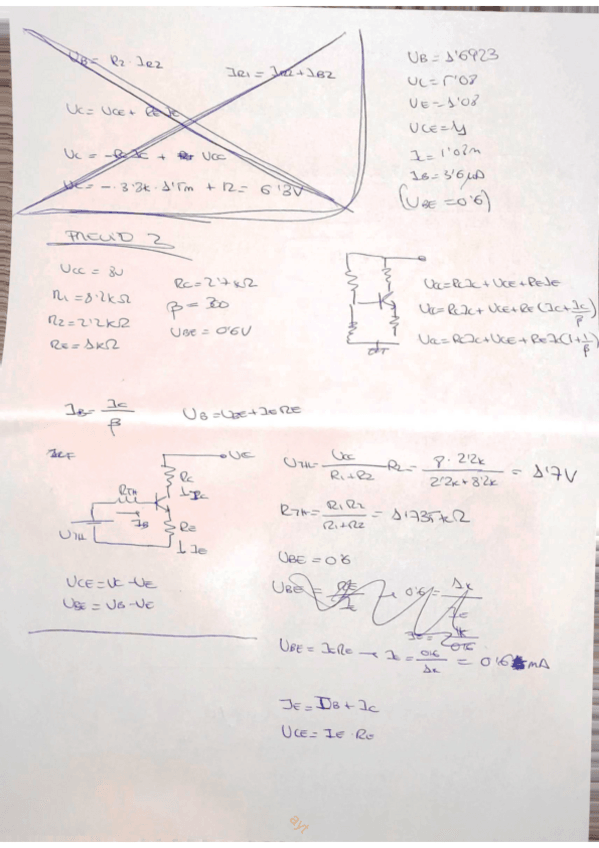 UB = R2 · IR2
IR1 = IR2 + IB2
UC = UCE + REIC
UC = -RCIC + UCC
UC = - 3'3k · 1'5m + 12 = 6'3V
UB = 1'6923
UC = 5'08
UE = 1'08
UCE = 4
I = 1'08m
IB = 3'6 µA
(UBE = 0'6)
UCC = 8V
R1 = 8'2kΩ
R2 = 2'2kΩ
RE = 1kΩ
RC = 2'7kΩ
β = 300
UBE = 0'6V
UCC = RCIC + UCE + REIE
UCC = RCIC + UCE + RE (IC + IC/β)
UCC = RCIC + UCE + REIC (1 + 1/β)
IB = IC/β
UB = UBE + IERE
UCC
RC
IC
RTH
IB
RE
UTH
IE
UCE = UC - UE
UBE = UB - UE
UTH = UCC/(R1+R2) R2 = 8 · 2'2k/(2'2k + 8'2k) = 1'7V
RTH = R1R2/(R1+R2) = 1'735kΩ
UBE = 0'6
UBE = RE/IE → 0'6 = 1k/IE
UBE = IERE → IE = 0'6/1k = 0'6 mA
IE = IB + IC
UCE = IE · RE